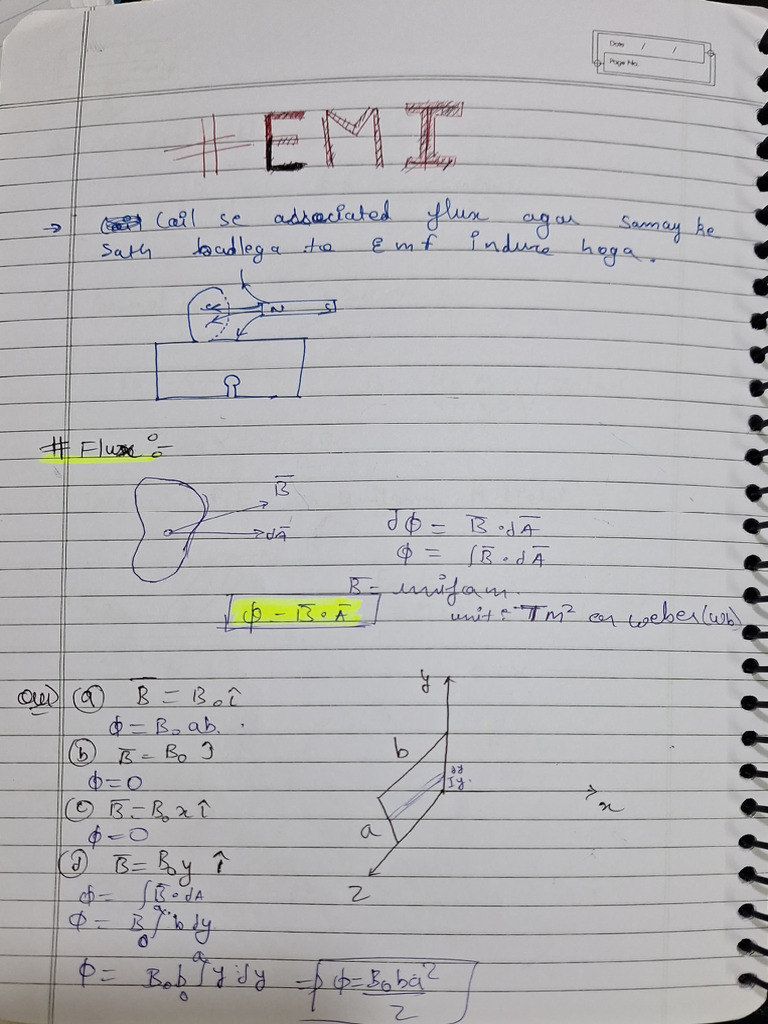 Date / /
Page No.
# EMI
→ Coil se associated flux agar samay ke
sath badlega to Emf induce hoga.
N S
# Flux :-
B̅
dA̅
dϕ = B̅·dA̅
ϕ = ∫B̅·dA̅
B̅ = uniform.
ϕ = B̅·A̅
unit: Tm² or weber(wb)
Que) (a) B̅ = B₀ î
ϕ = B₀ab.
(b) B̅ = B₀ ĵ
ϕ = 0
(c) B̅ = B₀x î
ϕ = 0
(d) B̅ = B₀y î
ϕ = ∫B̅·dA
ϕ = B̅ ∫₀ᵃ b dy
ϕ = B₀b ∫₀ᵃ y dy ⇒ ϕ = B₀ba²/2
y
b
dy
y
x
a
Z